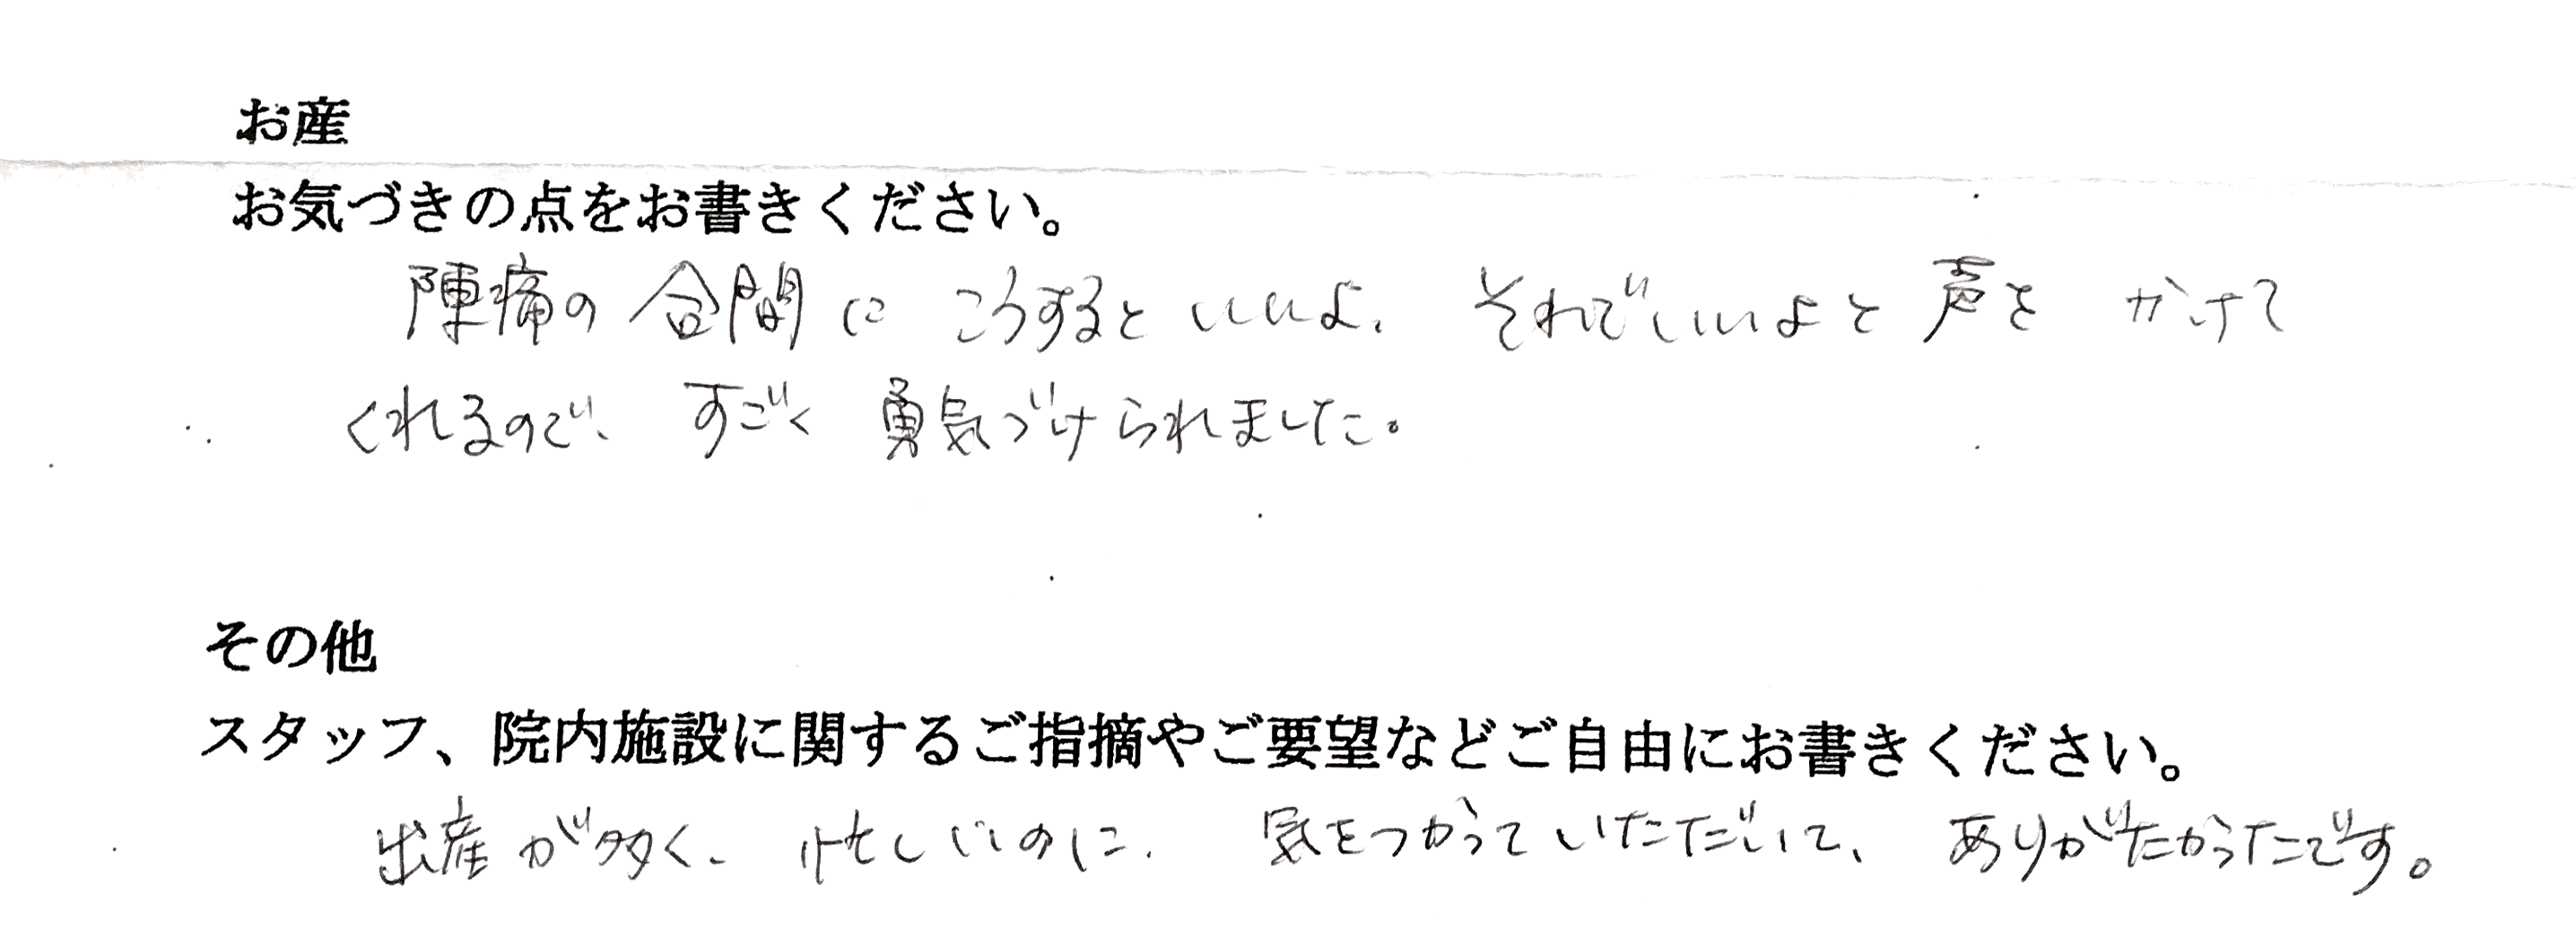 お産
お気づきの点をお書きください。
陣痛の合間に こうするといいよ、 それでいいよと声を かけて
くれるので、 すごく 勇気づけられました。
その他
スタッフ、院内施設に関するご指摘やご要望などご自由にお書きください。
出産が多く、 忙しいのに、 気をつかっていただいて、 ありがたかったです。